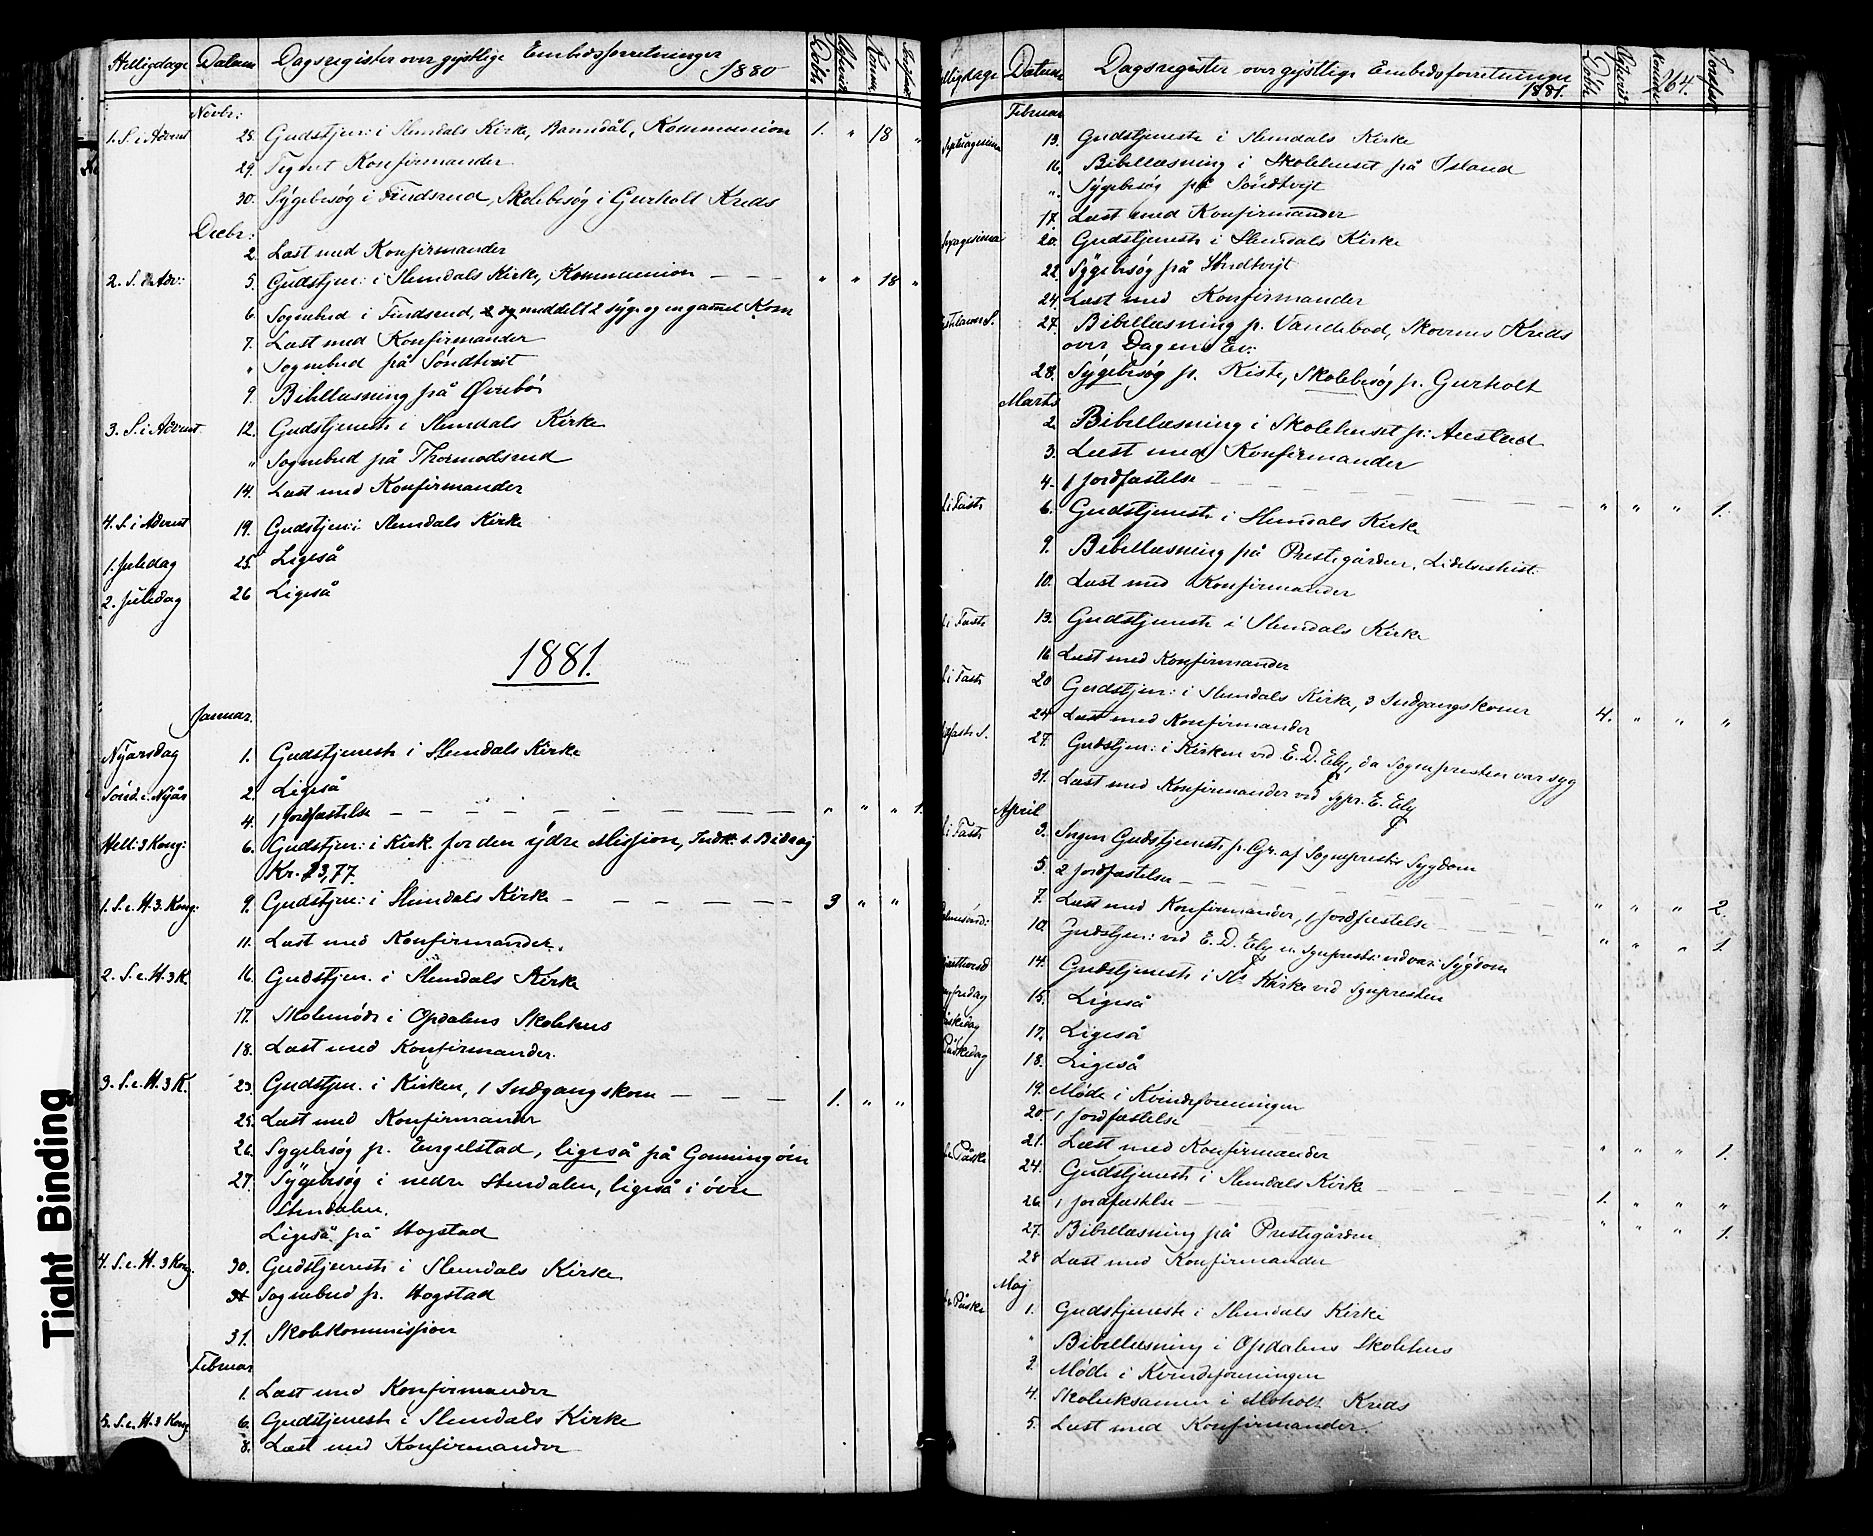 Helligdage Datum Dagsregister over gejstlige Embedsforretninger 1880 Döbte Komm.
Novbr:
1. S. i Advent 28. Gudstjen: i Slemdals Kirke, Barnedåb, Kommunion 1. " 18 "
29. Tegnet Konfirmander
30. Sÿgebesøg i Findsrud, Skolebesøg i Gurholt Kreds
Decbr:
2. Læst med Konfirmander
2. S. i Adv: 5. Gudstjen: i Slemdals Kirke, Kommunion — — — " " 18 "
6. Sognebud i Findsrud, og meddelt 2 syge og en gammel Kom
7. Læst med Konfirmander
" Sognebud på Söndtveit
9. Bibellæsning på Øvrebö
3. S. i Advent 12. Gudstjeneste i Slemdals Kirke
" Sognebud på Thormodsrud
14. Læst med Konfirmander
4. S. i Advent 19. Gudstjen: i Slemdals Kirke
1. Juledag 25. Ligeså
2. Juledag 26 Ligeså
1881.
Januar.
Nÿarsdag 1. Gudstjeneste i Slemdals Kirke
Sönd. e. Nÿår 2. Ligeså
4. 1 Jordfæstelse — — — — — — " " " 1.
Hell: 3 Kong: 6. Gudstjen: i Kirk. for den ÿdre Mission, Indk. s. Bidrag
Kr. 23,77.
1. S. e. H. 3. Kong: 9. Gudstjen: i Slemdals Kirke — — — — — — 3 " "
11. Læst med Konfirmander.
2. S. e. H. 3 K. 16. Gudstjen. i Slemdals Kirke
17. Skolemöde i Opdalens Skolehus
18. Læst med Konfirmander.
3. S. e. H. 3 K. 23. Gudstjen. i Kirken, 1 Indgangskone — — — — 1. " "
25. Læst med Konfirmander
26. Sygebesög p. Engelstad, ligeså på Gonningöen
27. Sÿgebesög i nedre Slemdalen, ligeså i övre
Slemdalen.
Ligeså på Hogstad
4. S. e. H. 3 Kong. 30. Gudstjeneste i Slemdals Kirke
31 Sognebud p. Hogstad
31. Skolekommission
Februar
1. Læst med Konfirmander
5. S. e. H. 3 Kong. 6. Gudstjeneste i Slemdals Kirke
8. Læst med Konfirmander
lligdage Datum Dagsregister over gejstlige Embedsforretninger 1881. Döbte 264. Jordfæst.
Februar
Septuagesima 13. Gudstjeneste i Slemdals Kirke
16. Bibellæsning i Skolehuset på Island
" Sÿgebesøg på Söndtvejt
17. Læst med Konfirmander
20. Gudstjeneste i Slemdals Kirke
22. Sÿgebesög på Söndtvejt
24. Læst med Konfirmander
astelavns S. 27. Bibellæsning p. Vandebod, Skovnes Kreds
over Dagens Ev:
28. Sÿgebesög p. Kiste, Skolebesög p. Gurholt
Marts
2. Bibellæsning i Skolehuset p:
3. Læst med Konfirmander
4. 1 Jordfæstelse — — — — — — " " " 1.
S. i Faste 6. Gudstjeneste i Slemdals Kirke
9. Bibellæsning på Prestegården, Lidelseshist.
10. Læst med Konfirmander
S. i Faste 13. Gudstjeneste i Slemdals Kirke
16 Læst med Konfirmander
S. i Faste 20 Gudstjen: i Slemdals Kirke, 3 Indgangskoner 4. " " "
24 Læst med Konfirmander
idfaste S. 27. Gudstjen: i Kirken ved E. D. Ely, da Sognepresten var syg
31. Læst med Konfirmander ved E. Ely
April
S. i Faste 3. Ingen Gudstjeneste p. Gr. af Sogneprestes Sygdom
5. 2 Jordfæstelse — — — — — " " " 2.
7. Læst med Konfirmander, 1 Jordfæstelse — — — " " " 1.
almesönd: 10. Gudstjen: ved E. D. Ely Sÿgdom
14. Gudstjeneste i Sl. Kirke ved Sgnpresten
15. Ligeså
17. Ligeså
18. Ligeså
19. Møde i Kvindeforeningen
20. 1 Jordfæstelse " " " 1.
21. Læst med Konfirmander
e. Påske 24. Gudstjeneste i Slemdals Kirke — — — 1. " " "
26. 1 Jordfæstelse — — — — " " " 1.
27. Bibellæsning på Prestegården
28 Læst med Konfirmander
Maj
e. Påske 1. Gudstjeneste i Slemdals Kirke
" Bibellæsning i Opdalens Skolehus
3. Møde i Kvindeforeningen
4. Skoleeksamen i Moholt Kreds
5. Læst med Konfirmander.
Tight Binding